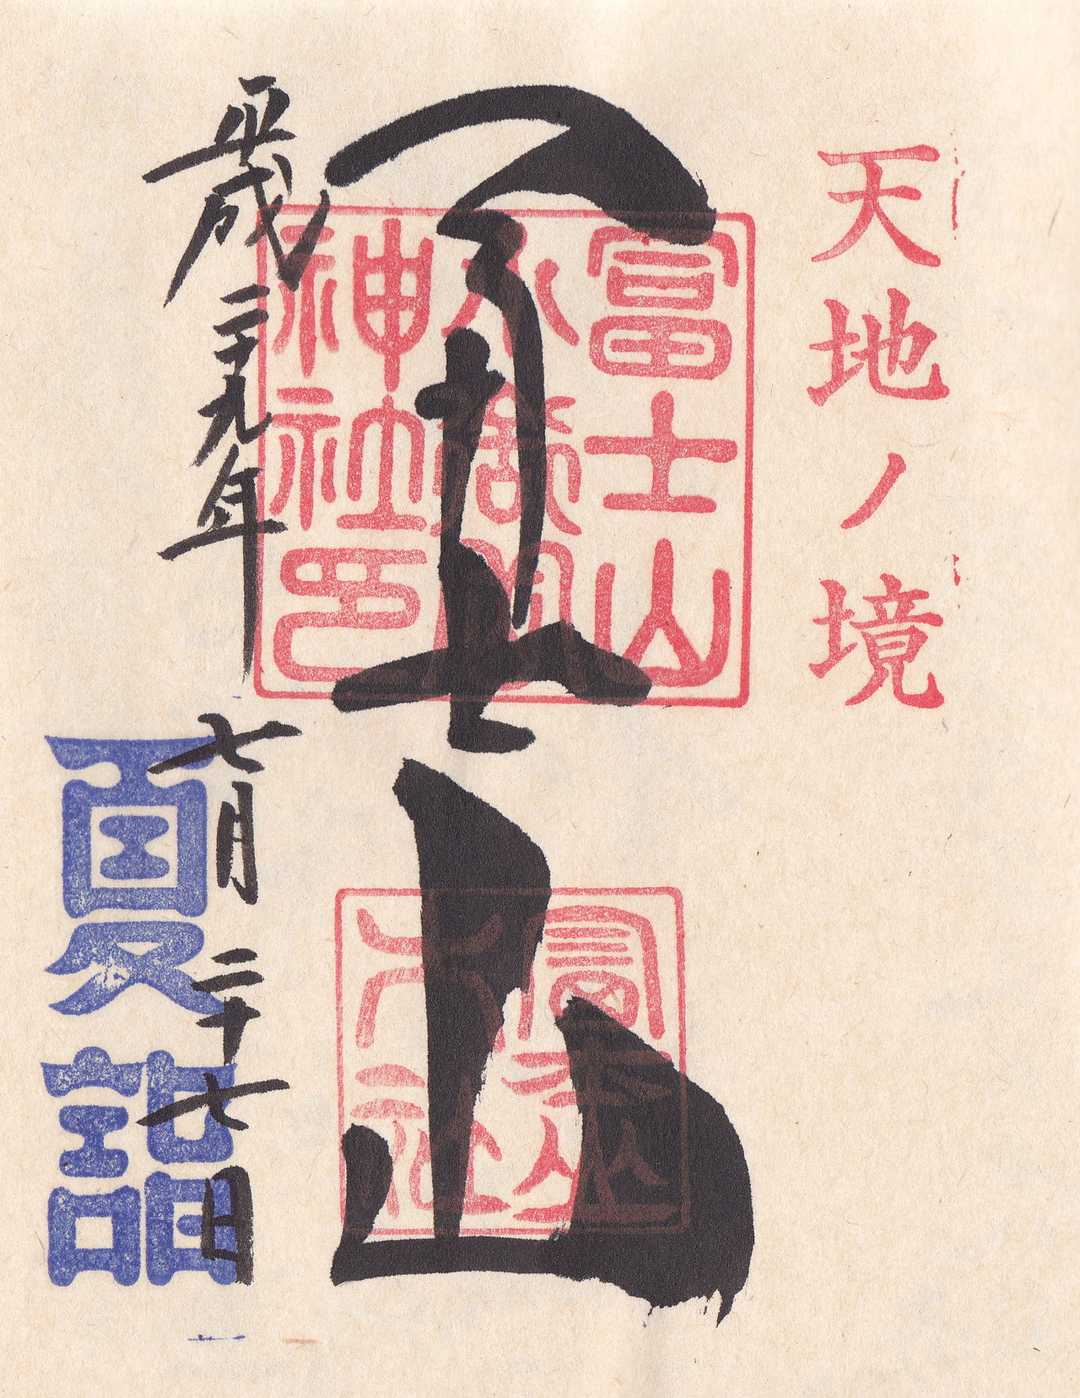 天地ノ境
富士山
富士山
小御嶽
神社印
平成二十九年七月二十七日
夏詣